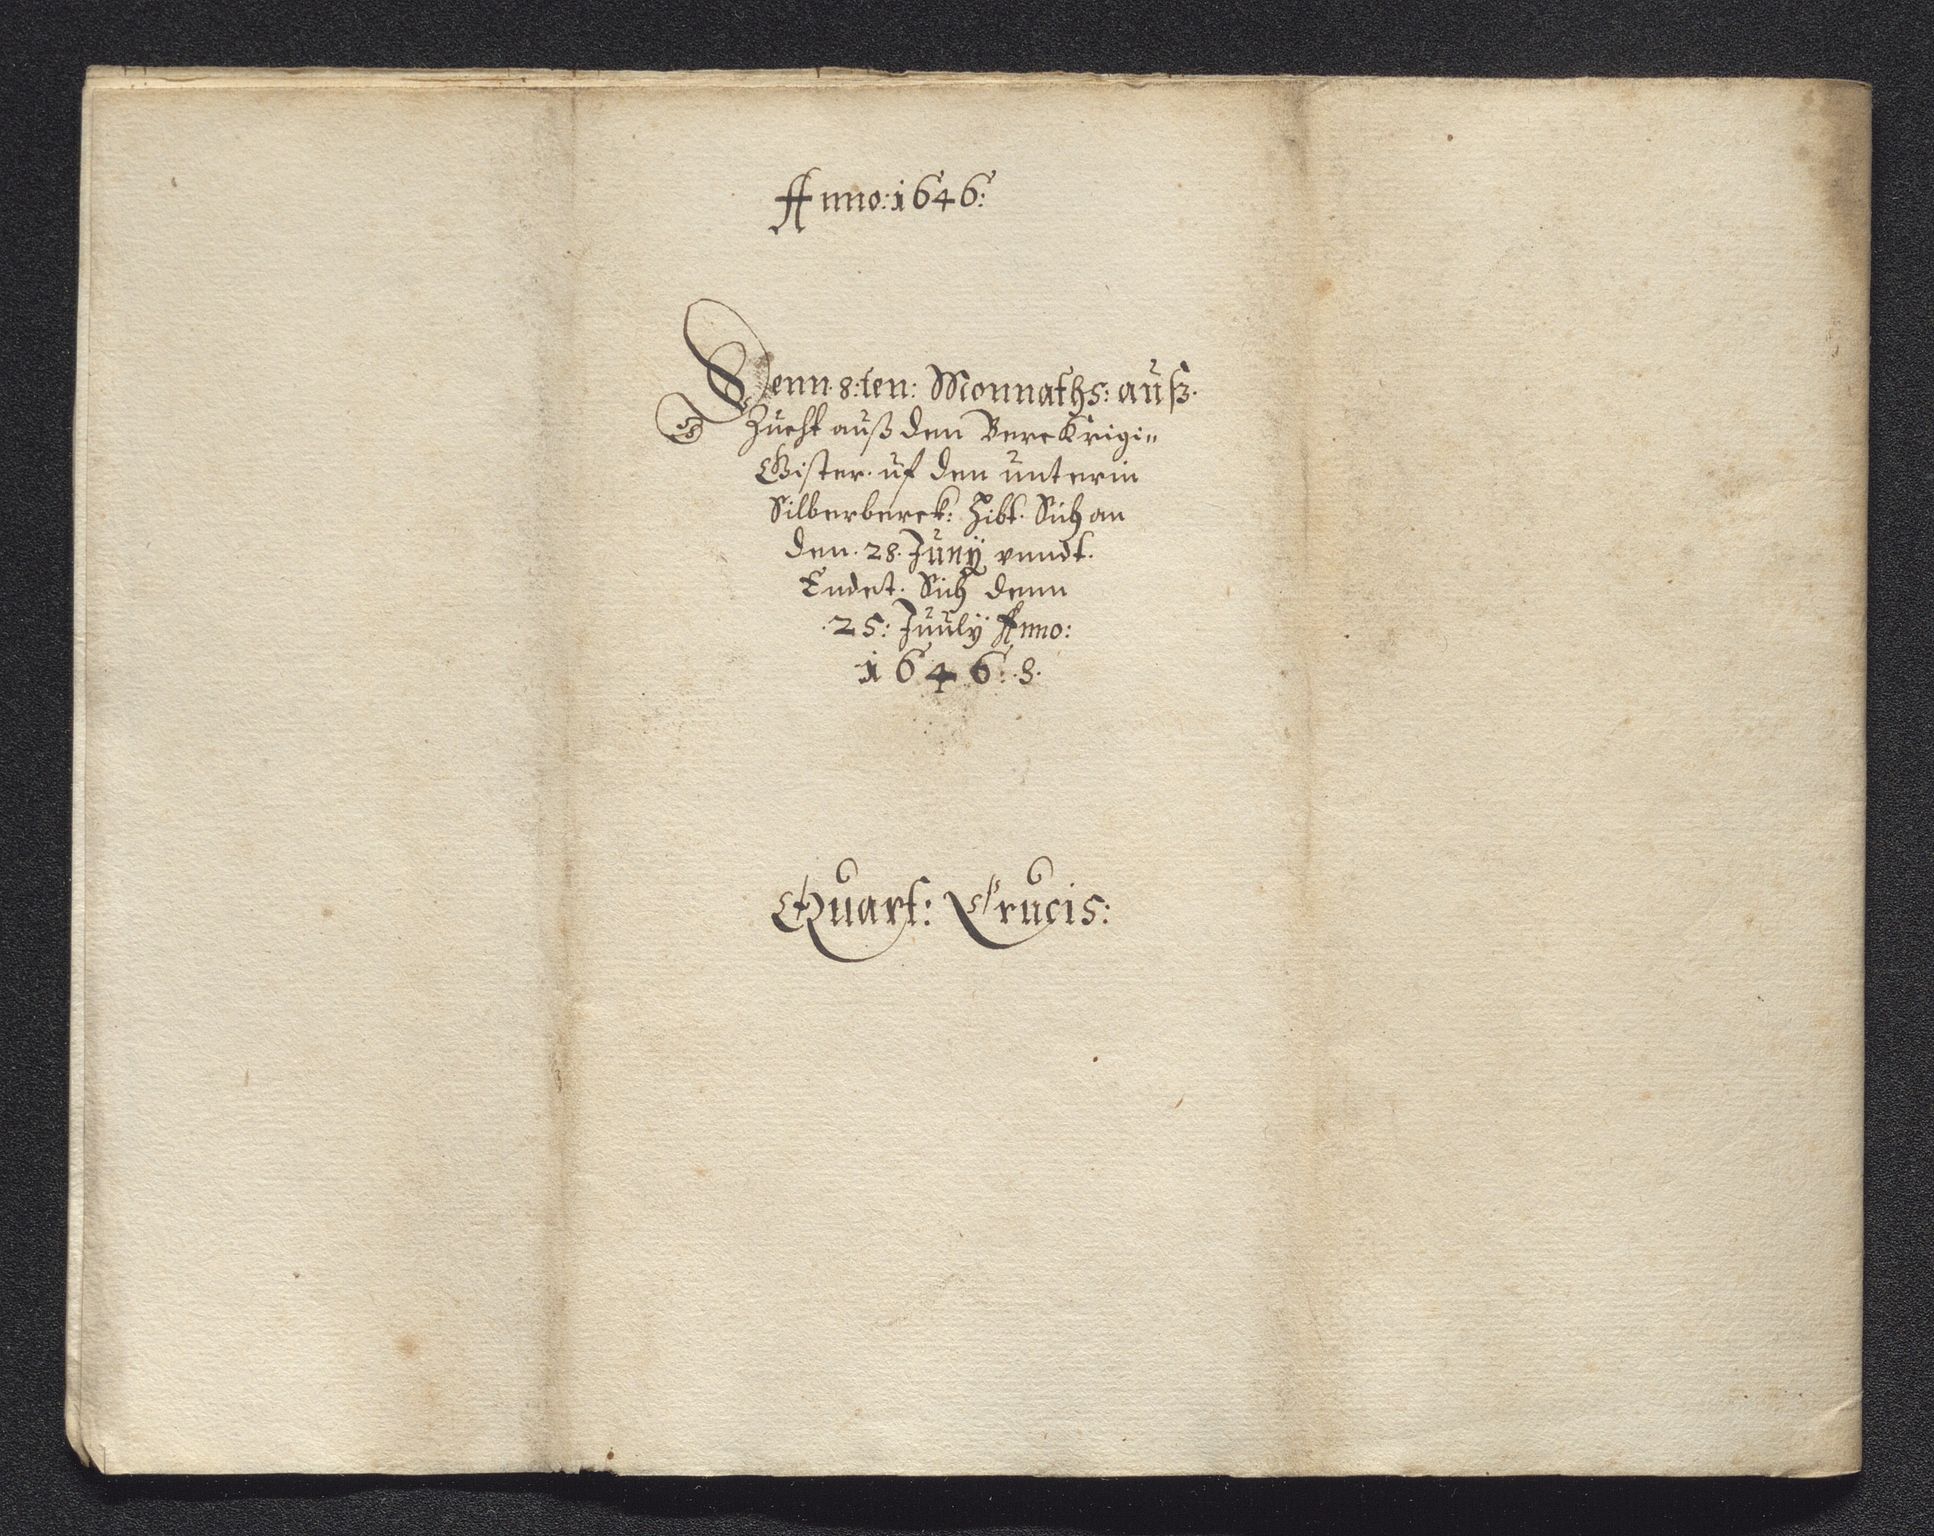 Anno: 1646:
Denn 8:ten: Monnaths: auß.
Zucht auß dem Berckrigi„
Gister. uf den unterin
Silberberck: Hibt. Sich an
den. 28. Juny vnndt.
Endet. Sich denn
25: Juuly Anno:
1646: 8.
Quart: Crucis: